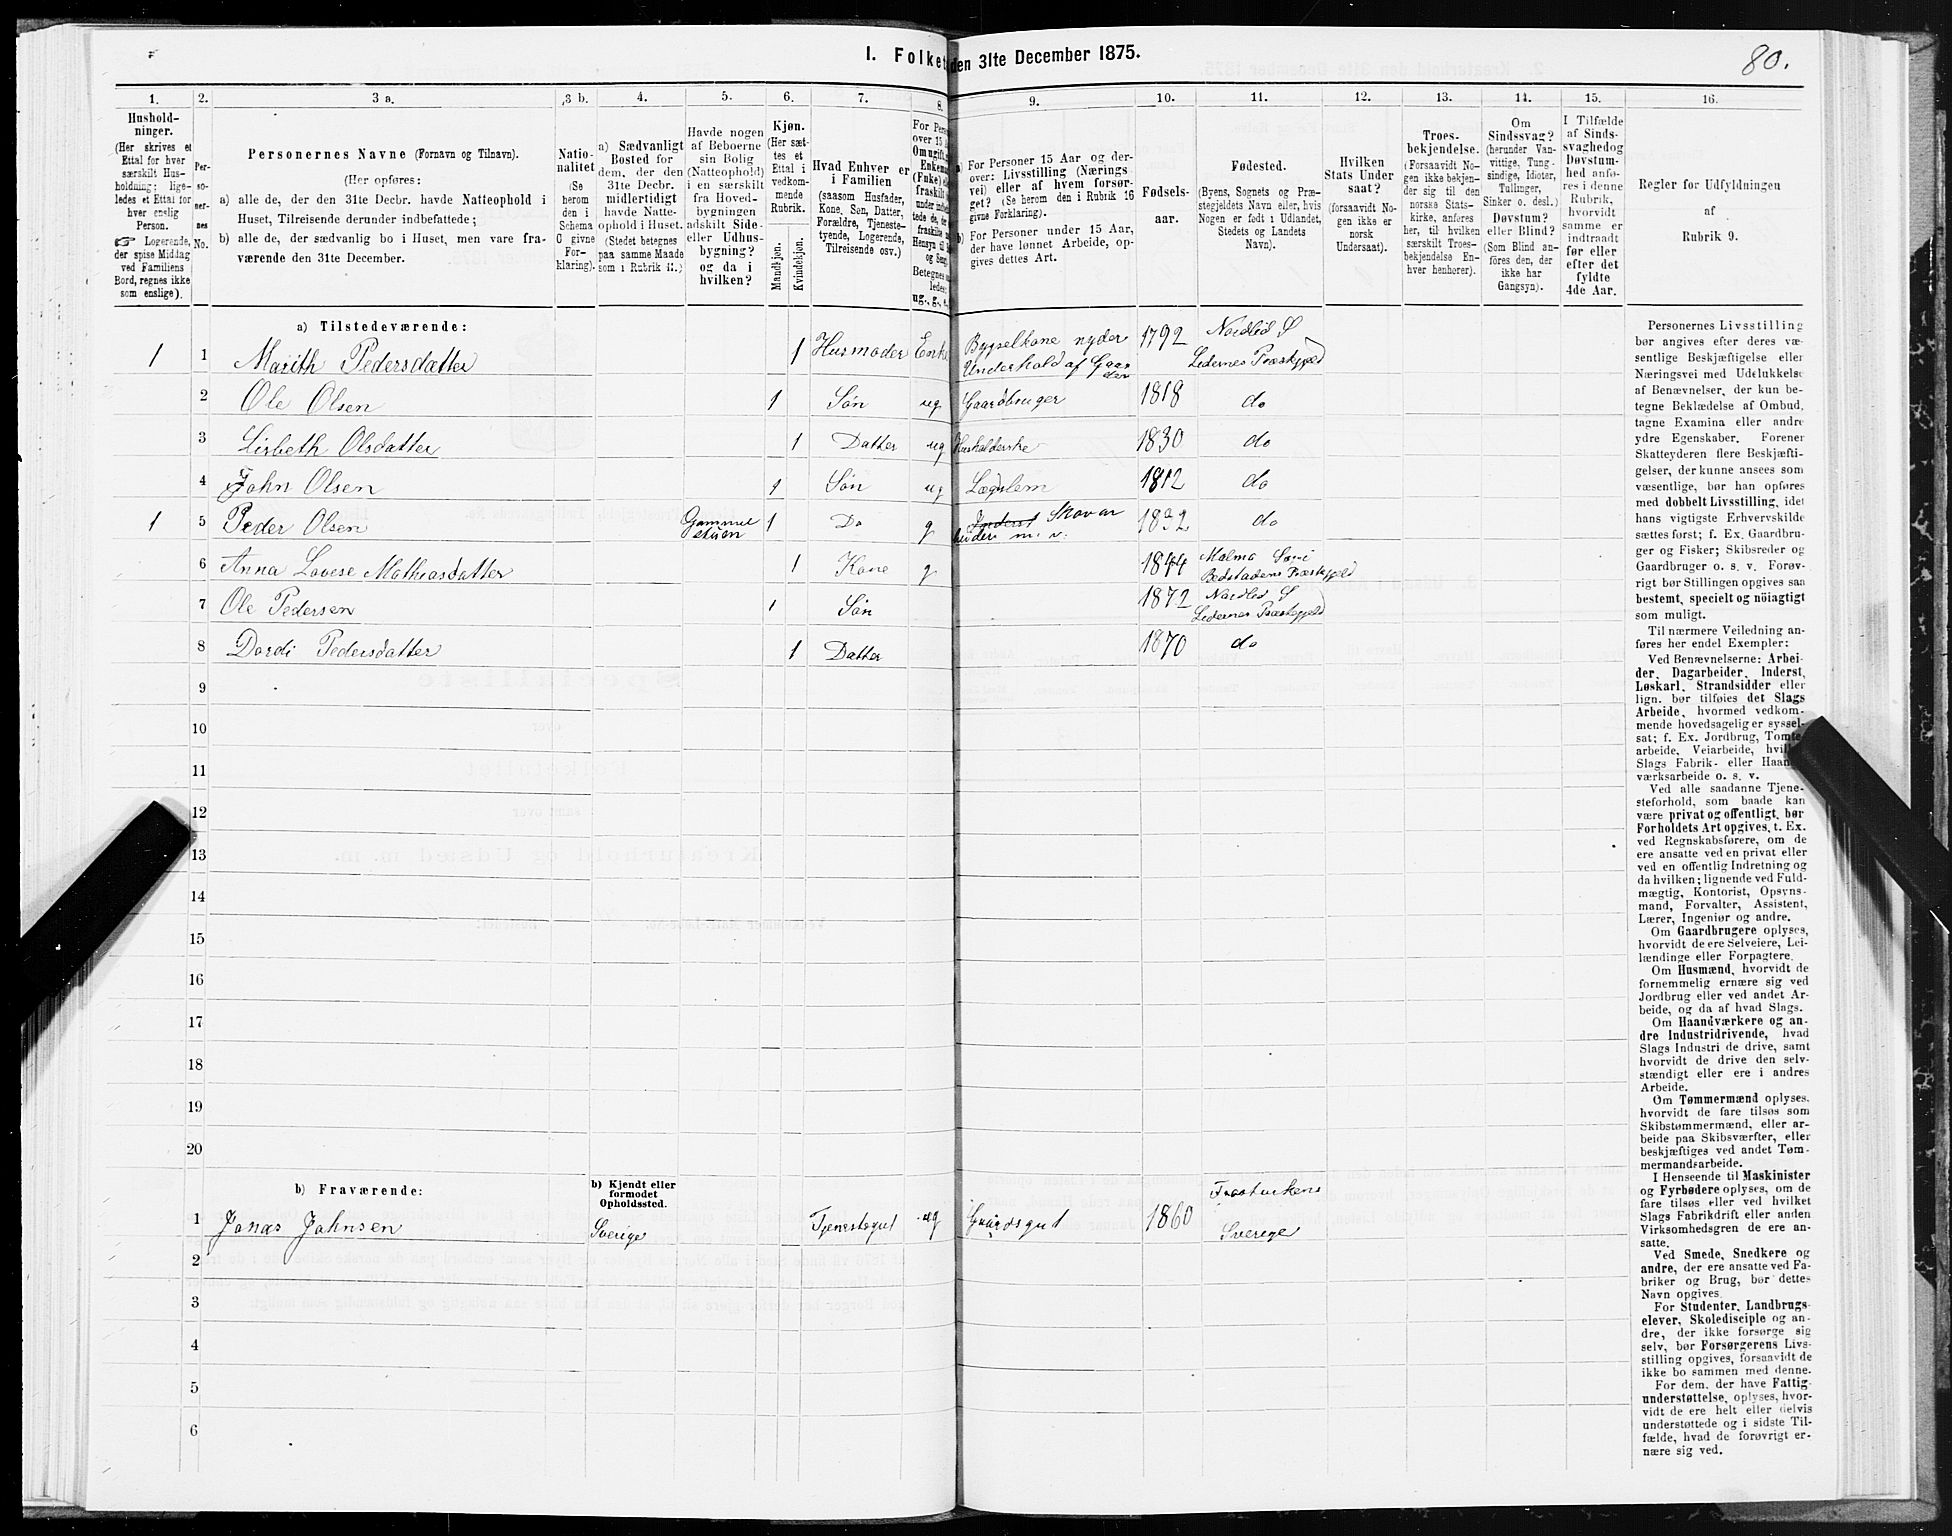 I. Folket den 31te December 1875.
80.
1. 2. 3 a. 3 b. 4. 5. 6. 7. 8. 9. 10. 11. 12. 13. 14. 15. 16.
Hushold-
ninger.
(Her skrives et
Ettal for hver
særskilt Hus-
holdning; lige-
ledes et Ettal for
hver enslig
Person.
☞ Logerende,
der spise Middag
ved Familiens
Bord, regnes ikke
som enslige).
Per-
so-
ner-
nes
No.
Personernes Navne (Fornavn og Tilnavn).
(Her opføres:
a) alle de, der den 31te Decbr. havde Natteophold i
Huset, Tilreisende derunder indbefattede;
b) alle de, der sædvanlig bo i Huset, men vare fra-
værende den 31te December.
Natio-
nalitet
(Se
herom
den i
Schema
G givne
For-
klaring).
a) Sædvanligt
Bosted for
dem, der den
31te Decbr.
midlertidigt
havde Natte-
ophold i Huset.
(Stedet betegnes
paa samme Maade
som i Rubrik 11.)
Havde nogen
af Beboerne
sin Bolig
(Natteophold)
i en særskilt
fra Hoved-
bygningen
adskilt Side-
eller Udhus-
bygning?
og da i
hvilken?
Kjøn.
(Her sæt-
tes et
Ettal i
vedkom-
mende
Rubrik.
Mandkjøn.
Kvindekjøn.
Hvad Enhver er
i Familien
(saasom Husfader,
Kone, Søn, Datter,
Forældre, Tjeneste-
tyende, Logerende,
Tilreisende osv.)
For Pers
over 15 A
Omugift,
Enkem
(Enke) el
fraskilt
tede de, er
fraskilte
Hensyn til
og Seng
Betegnes
ledes:
ug., g., e.
a) For Personer 15 Aar og der-
over: Livsstilling (Nærings
vei) eller af hvem forsør-
get? (Se herom den i Rubrik 16
givne Forklaring).
b) For Personer under 15 Aar,
der have lønnet Arbeide, op-
gives dettes Art.
Fødsels-
aar.
Fødested.
(Byens, Sognets og Præ-
stegjeldets Navn eller, hvis
Nogen er født i Udlandet,
Stedets og Landets
Navn).
Hvilken
Stats Under
saat?
(forsaavidt No-
gen ikke er
norsk
Undersaat).
Troes-
bekjendelse.
(Forsaavidt No-
gen ikke bekjen-
der sig til den
norske Stats-
kirke, anføres
her, til hvilken
særskilt Troes-
bekjendelse En-
hver henhører).
Om
Sindssvag?
(herunder Van-
vittige, Tung-
sindige, Idioter,
Tullinger,
Sinker o. desl.)
Døvstum?
eller Blind?
(Som Blind an-
føres den, der
ikke har
Gangsyn).
I Tilfælde
af Sinds-
svaghedog
Døvstum-
hed anfø-
res i denne
Rubrik,
hvorvidt
samme er
indtraadt
før eller
efter det
fyldte
4de Aar.
Regler for Udfyldningen
af
Rubrik 9.
a) Tilstedeværende:
1 1 Marith Pedersdatter 1 Husmoder Enke Bygselkone nyder Underhold af Gaarden 1792 Nordlid S Lidernes Præstgjeld
2 Ole Olsen 1 Søn ug Gaardbruger 1818 do
3 Lisbeth Olsdatter 1 Datter ug Husholderske 1830 do
4 John Olsen 1 Søn ug Lægslem 1812 do
1 5 Peder Olsen Gammel stuen 1 Do g Inderst Skovar beider m. v. 1832 do
6 Anna Lovese Mathiasdatter 1 Kone g 1844 Malmo Sogn Bedstadens Præstgjeld
7 Ole Pedersen 1 Søn 1872 Nordlid S Lidernes Præstegjeld
8 Dordi Pedersdatter 1 Datter 1870 do
9
10
11
12
13
14
15
16
17
18
19
20
b) Fraværende:
b) Kjendt eller
formodet
Opholdssted.
1 Jonas Johnsen Sverige Tjenestegut ug Gaardsgut 1860 Sverige
2
3
4
5
6
Personernes Livsstilling
bør angives efter deres væ-
sentlige Beskjæftigelse eller
Næringsvei med Udelukkelse
af Benævnelser, der kun be-
tegne Beklædelse af Ombud,
tagne Examina eller andre
ydre Egenskaber. Forener
Skatteyderen flere Beskjæfti-
gelser, der kunne ansees som
væsentlige, bør han opføres
med dobbelt Livsstilling, idet
hans vigtigste Erhvervskilde
sættes først; f. Ex. Gaardbru-
ger og Fisker; Skibsreder og
Gaardbruger o. s. v. Forøv-
rigt bør Stillingen opgives saa
bestemt, specielt og nöiagtigt
som muligt.
Til nærmere Veiledning an-
føres her endel Exempler:
Ved Benævnelserne: Arbei-
der, Dagarbeider, Inderst,
Løskarl, Strandsidder eller
lign. bør tilføies det Slags
Arbeide, hvormed vedkom-
mende hovedsagelig er syssel-
sat; f. Ex. Jordbrug, Tomte-
arbeide, Veiarbeide, hvil
Slags Fabrik- eller Haand-
værksarbeide o. s. v.
Ved alle saadanne Tjene-
steforhold, som baade kan
være privat og offentligt, bør
Forholdets Art opgives, t. Ex.
ved Regnskabsførere, om de
ere ansatte ved en privat eller
ved en offentlig Indretning og
da hvilken; lignende ved Fuld-
mægtig, Kontorist, Opsyns-
mand, Forvalter, Assistent,
Lærer, Ingeniør og andre.
Om Gaardbrugere oplyses,
hvorvidt de ere Selveiere, Lei-
lændinge eller Forpagtere.
Om Husmænd, hvorvidt de
fornemmelig ernære sig ved
Jordbrug eller ved andet Ar-
beide, og da af hvad Slags.
Om Haandværkere og an-
dre Industridrivende, hvad
Slags Industri de drive, samt
hvorvidt de drive den selv-
stændigt eller ere i andres
Arbeide.
Om Tømmermænd oplyses,
hvorvidt de fare tilsøs som
Skibstømmermænd, eller ar-
beide paa Skibsværfter, eller
beskjæftiges ved andet Tøm-
mermandsarbeide.
I Henseende til Maskinister
og Fyrbødere oplyses, om de
fare tilsøs eller ved hvilket
Slags Fabrikdrift eller anden
Virksomhedsgren de ere an-
satte.
Ved Smede, Snedkere og
andre, der ere ansatte ved Fa-
briker og Brug, bør dettes
Navn opgives.
For Studenter, Landbrugs-
elever, Skoledisciple og an-
dre, der ikke forsørge sig
selv, bør Forsørgerens Livs-
stilling opgives, forsaavidt de
ikke bo sammen med denne.
For dem, der have Fattig-
understøttelse, oplyses, hvor-
vidt de ere helt eller delvis
understøttede og i sidste Til-
fælde, hvad de forøvrigt er-
nære sig ved.